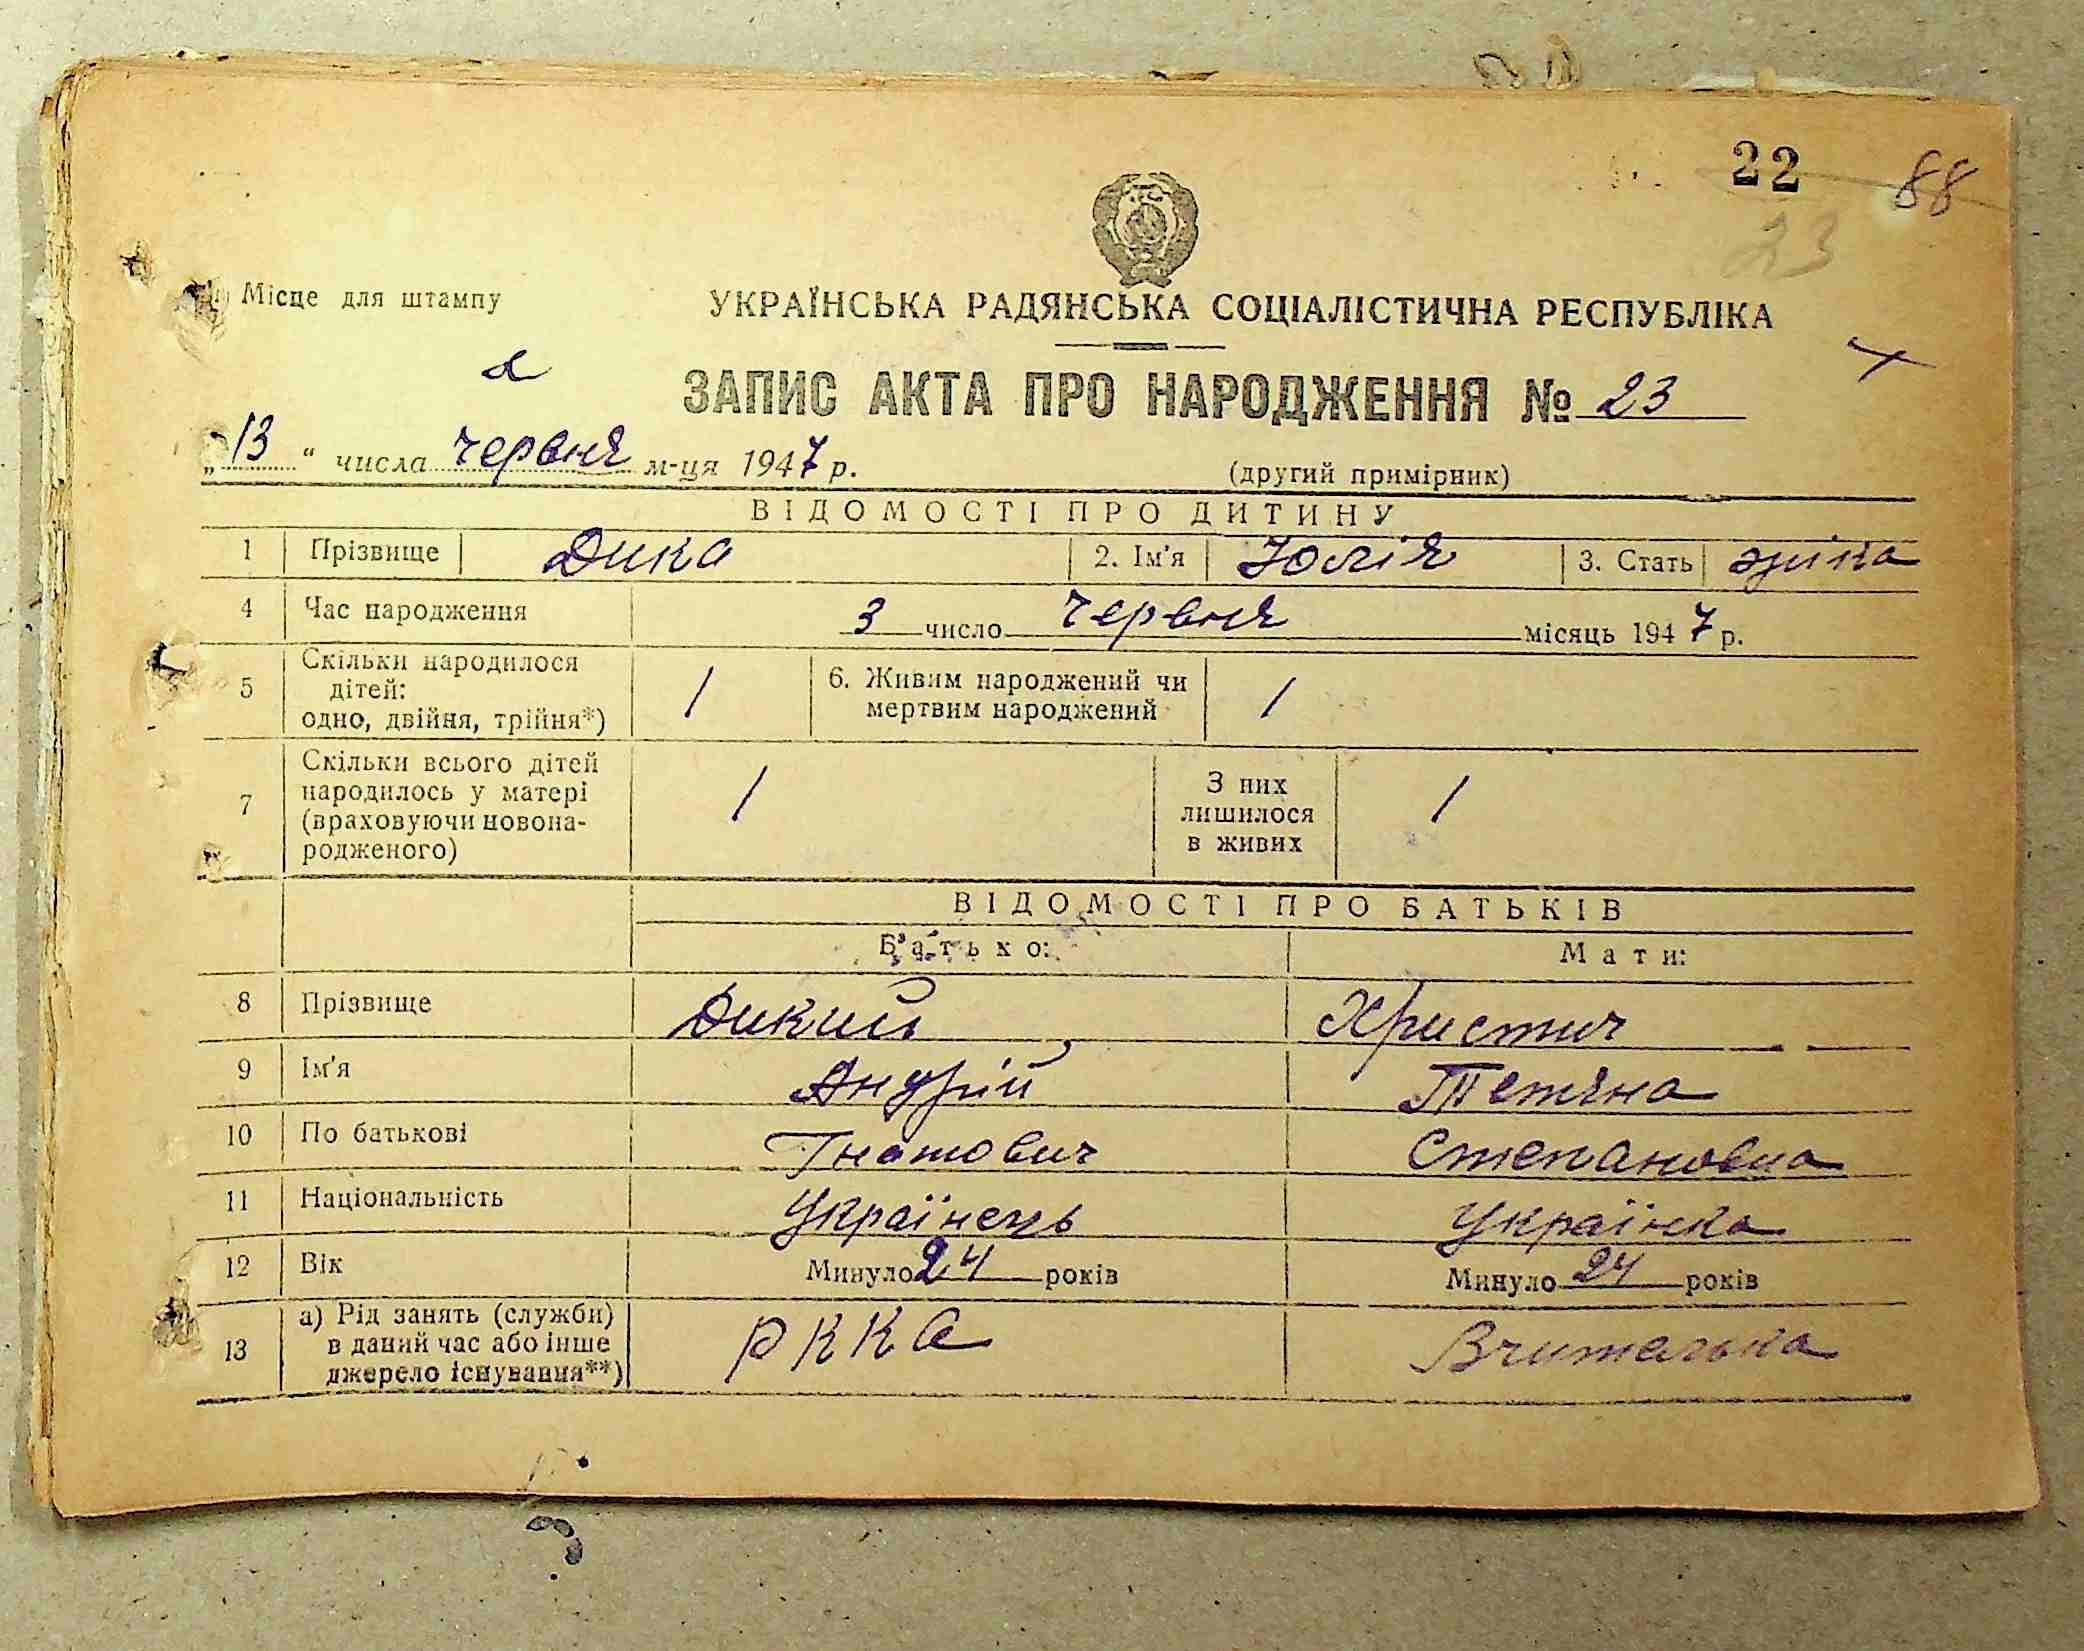 22 88
23
Місце для штампу
УКРАЇНСЬКА РАДЯНСЬКА СОЦІАЛІСТИЧНА РЕСПУБЛІКА
ЗАПИС АКТА ПРО НАРОДЖЕННЯ № 23
„13“ числа червня м-ця 1947 р.
(другий примірник)
ВІДОМОСТІ ПРО ДИТИНУ
1 Прізвище Дика 2. Ім'я Юлія 3. Стать жіна
4 Час народження 3 число червня місяць 1947 р.
5 Скільки народилося
дітей:
одно, двійня, трійня*) 1
6. Живим народжений чи
мертвим народжений 1
7 Скільки всього дітей
народилось у матері
(враховуючи новона-
родженого) 1
З них
лишилося
в живих 1
ВІДОМОСТІ ПРО БАТЬКІВ
Батько: Мати:
8 Прізвище Дикий Христич
9 Ім'я Андрій Тетяна
10 По батькові Гнатович Степановна
11 Національність Українець Українка
12 Вік Минуло 24 років Минуло 24 років
13 а) Рід занять (служби)
в даний час або інше
джерело існування**) РККА Вчителька